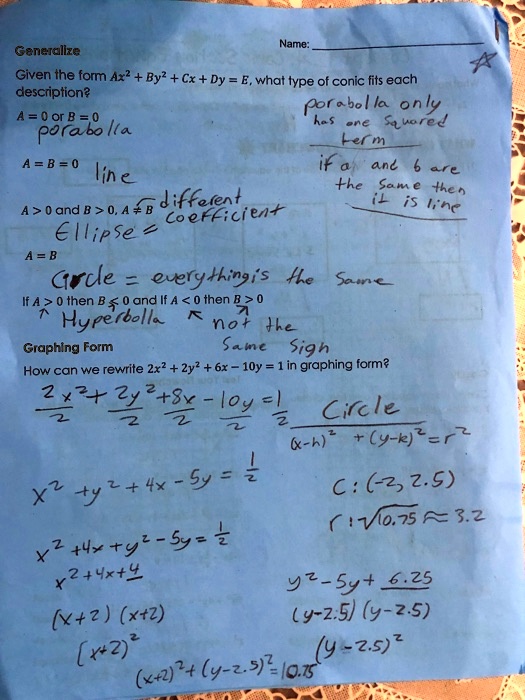 Name:
Generalize
Given the form Ax² + By² + Cx + Dy = E, what type of conic fits each
description?
A = 0 or B = 0
porabolla
porabolla only
has one squared
term
A = B = 0
line
if a and b are
the same then
it is line
A > 0 and B > 0, A ≠ B
different
coefficient
Ellipse
A = B
Circle = everything is the same
If A > 0 then B < 0 and If A < 0 then B > 0
↑ Hyperbolla ↖ not the ↗
same sign
Graphing Form
How can we rewrite 2x² + 2y² + 6x – 10y = 1 in graphing form?
2x²+ 2y²+8x - 10y = 1
2 2 2 2 2
Circle
(x-h)² + (y-k)² = r²
x² + y² + 4x - 5y = 1/2
C: (-2, 2.5)
r: √10.75 ≈ 3.2
x² +4x + y² - 5y = 1/2
x² + 4x + 4
y² - 5y + 6.25
(x+2) (x+2)
(y-2.5) (y-2.5)
(x+2)²
(y-2.5)²
(x+2)² + (y-2.5)² = 10.75